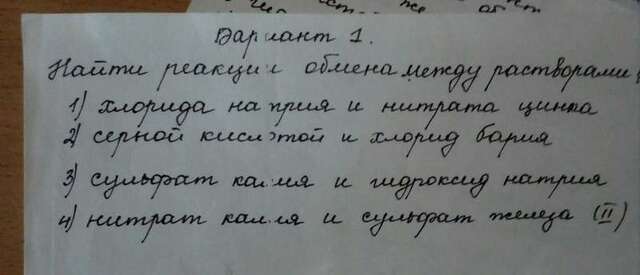 Вариант 1.
Найти реакции обмена между растворами
1) хлорида натрия и нитрата цинка
2) серной кислотой и хлорид бария
3) сульфат калия и гидроксид натрия
4) нитрат калия и сульфат железа (II)